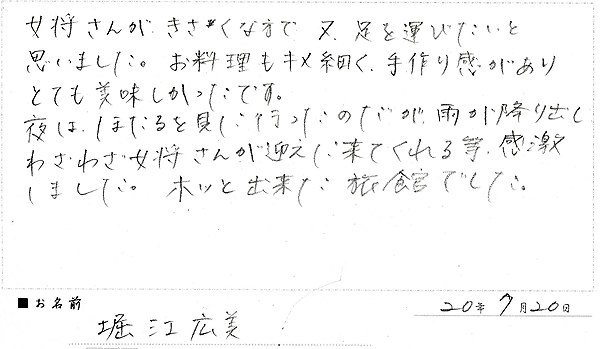 女将さんが、きさくな方で、又、足を運びたいと
思いました。お料理もキメ細く、手作り感があり
とても美味しかったです。
夜は、ほたるを見に行ったのだが、雨が降り出し
わざわざ女将さんが迎えに来てくれる等、感激
しました。ホッと出来た旅館でした。
■お名前
20年7月20日
堀江広美